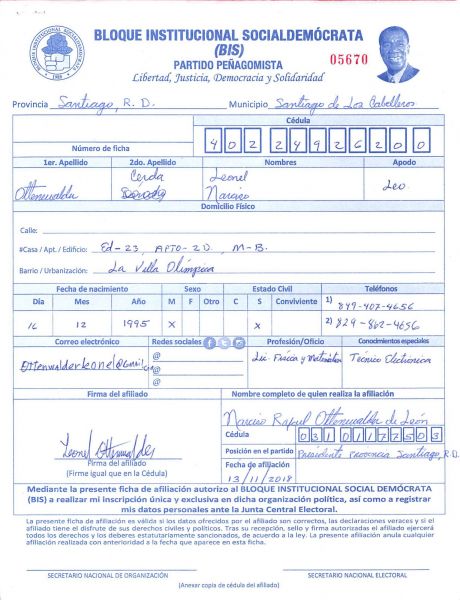 BLOQUE INSTITUCIONAL SOCIALDEMÓCRATA
(BIS)
PARTIDO PEÑAGOMISTA
05670
Libertad, Justicia, Democracia y Solidaridad
Provincia Santiago, R.D. Municipio Santiago de Los Caballeros
Cédula
Número de ficha 402 2492620 0
1er. Apellido 2do. Apellido Nombres Apodo
Ottenwalder Cerda Leonel Narciso Leo
Domicilio Físico
Calle:
#Casa / Apt. / Edificio: Ed-23, APTO-2D, M-B.
Barrio / Urbanización: La Villa Olímpica
Fecha de nacimiento Sexo Estado Civil Teléfonos
Día Mes Año M F Otro C S Conviviente 1) 849-407-4656
16 12 1995 X X 2) 829-862-4656
Correo electrónico Redes sociales Profesión/Oficio Conocimientos especiales
Ottenwalderleonel@Gmail.com @ Lic. Física y Matemática Técnico Electrónica
@
@
Firma del afiliado Nombre completo de quien realiza la afiliación
Narciso Rafael Ottenwalder de León
Cédula
03101177503
Leonel Ottenwalder
Posición en el partido Presidente Provincia Santiago, R.D.
Firma del afiliado
(Firme igual que en la Cédula)
Fecha de afiliación
13/11/2018
Mediante la presente ficha de afiliación autorizo al BLOQUE INSTITUCIONAL SOCIAL DEMÓCRATA
(BIS) a realizar mi inscripción única y exclusiva en dicha organización política, así como a registrar
mis datos personales ante la Junta Central Electoral.
La presente ficha de afiliación es válida si los datos ofrecidos por el afiliado son correctos, las declaraciones veraces y si el
afiliado tiene el disfrute de sus derechos civiles y políticos. Tras su recepción, sello y firma autorizadas el afiliado ejercerá
todos los derechos y los deberes estatutariamente sancionados, de acuerdo a la ley. La presente afiliación anula cualquier
afiliación realizada con anterioridad a la fecha que aparece en esta ficha.
SECRETARIO NACIONAL DE ORGANIZACIÓN SECRETARIO NACIONAL ELECTORAL
(Anexar copia de cédula del afiliado)